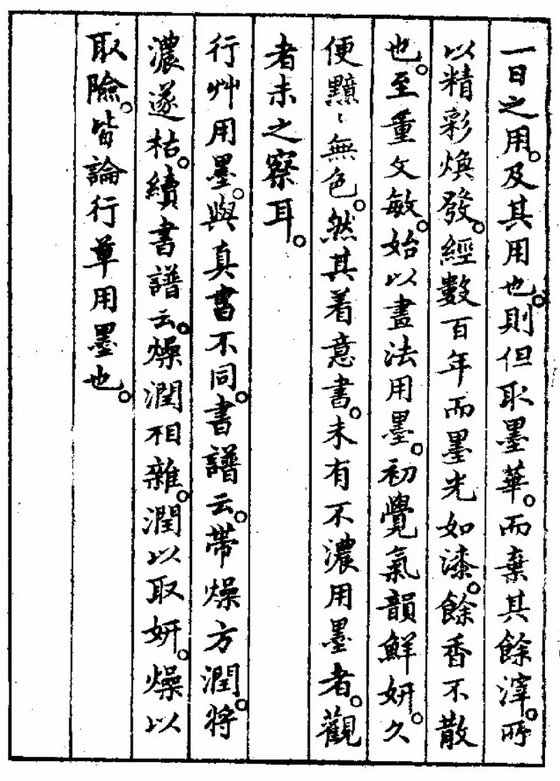 一日之用。及其用也。則但取墨華。而棄其餘滓。所
以精彩煥發。經數百年而墨光如漆。餘香不散
也。至董文敏。始以畫法用墨。初覺氣韻鮮妍。久
便黯〻無色。然其着意書。未有不濃用墨者。觀
者未之察耳。
行艸用墨。與真書不同。書譜云。帶燥方潤。將
濃遂枯。續書譜云。燥潤相雜。潤以取妍。燥以
取險。皆論行草用墨也。